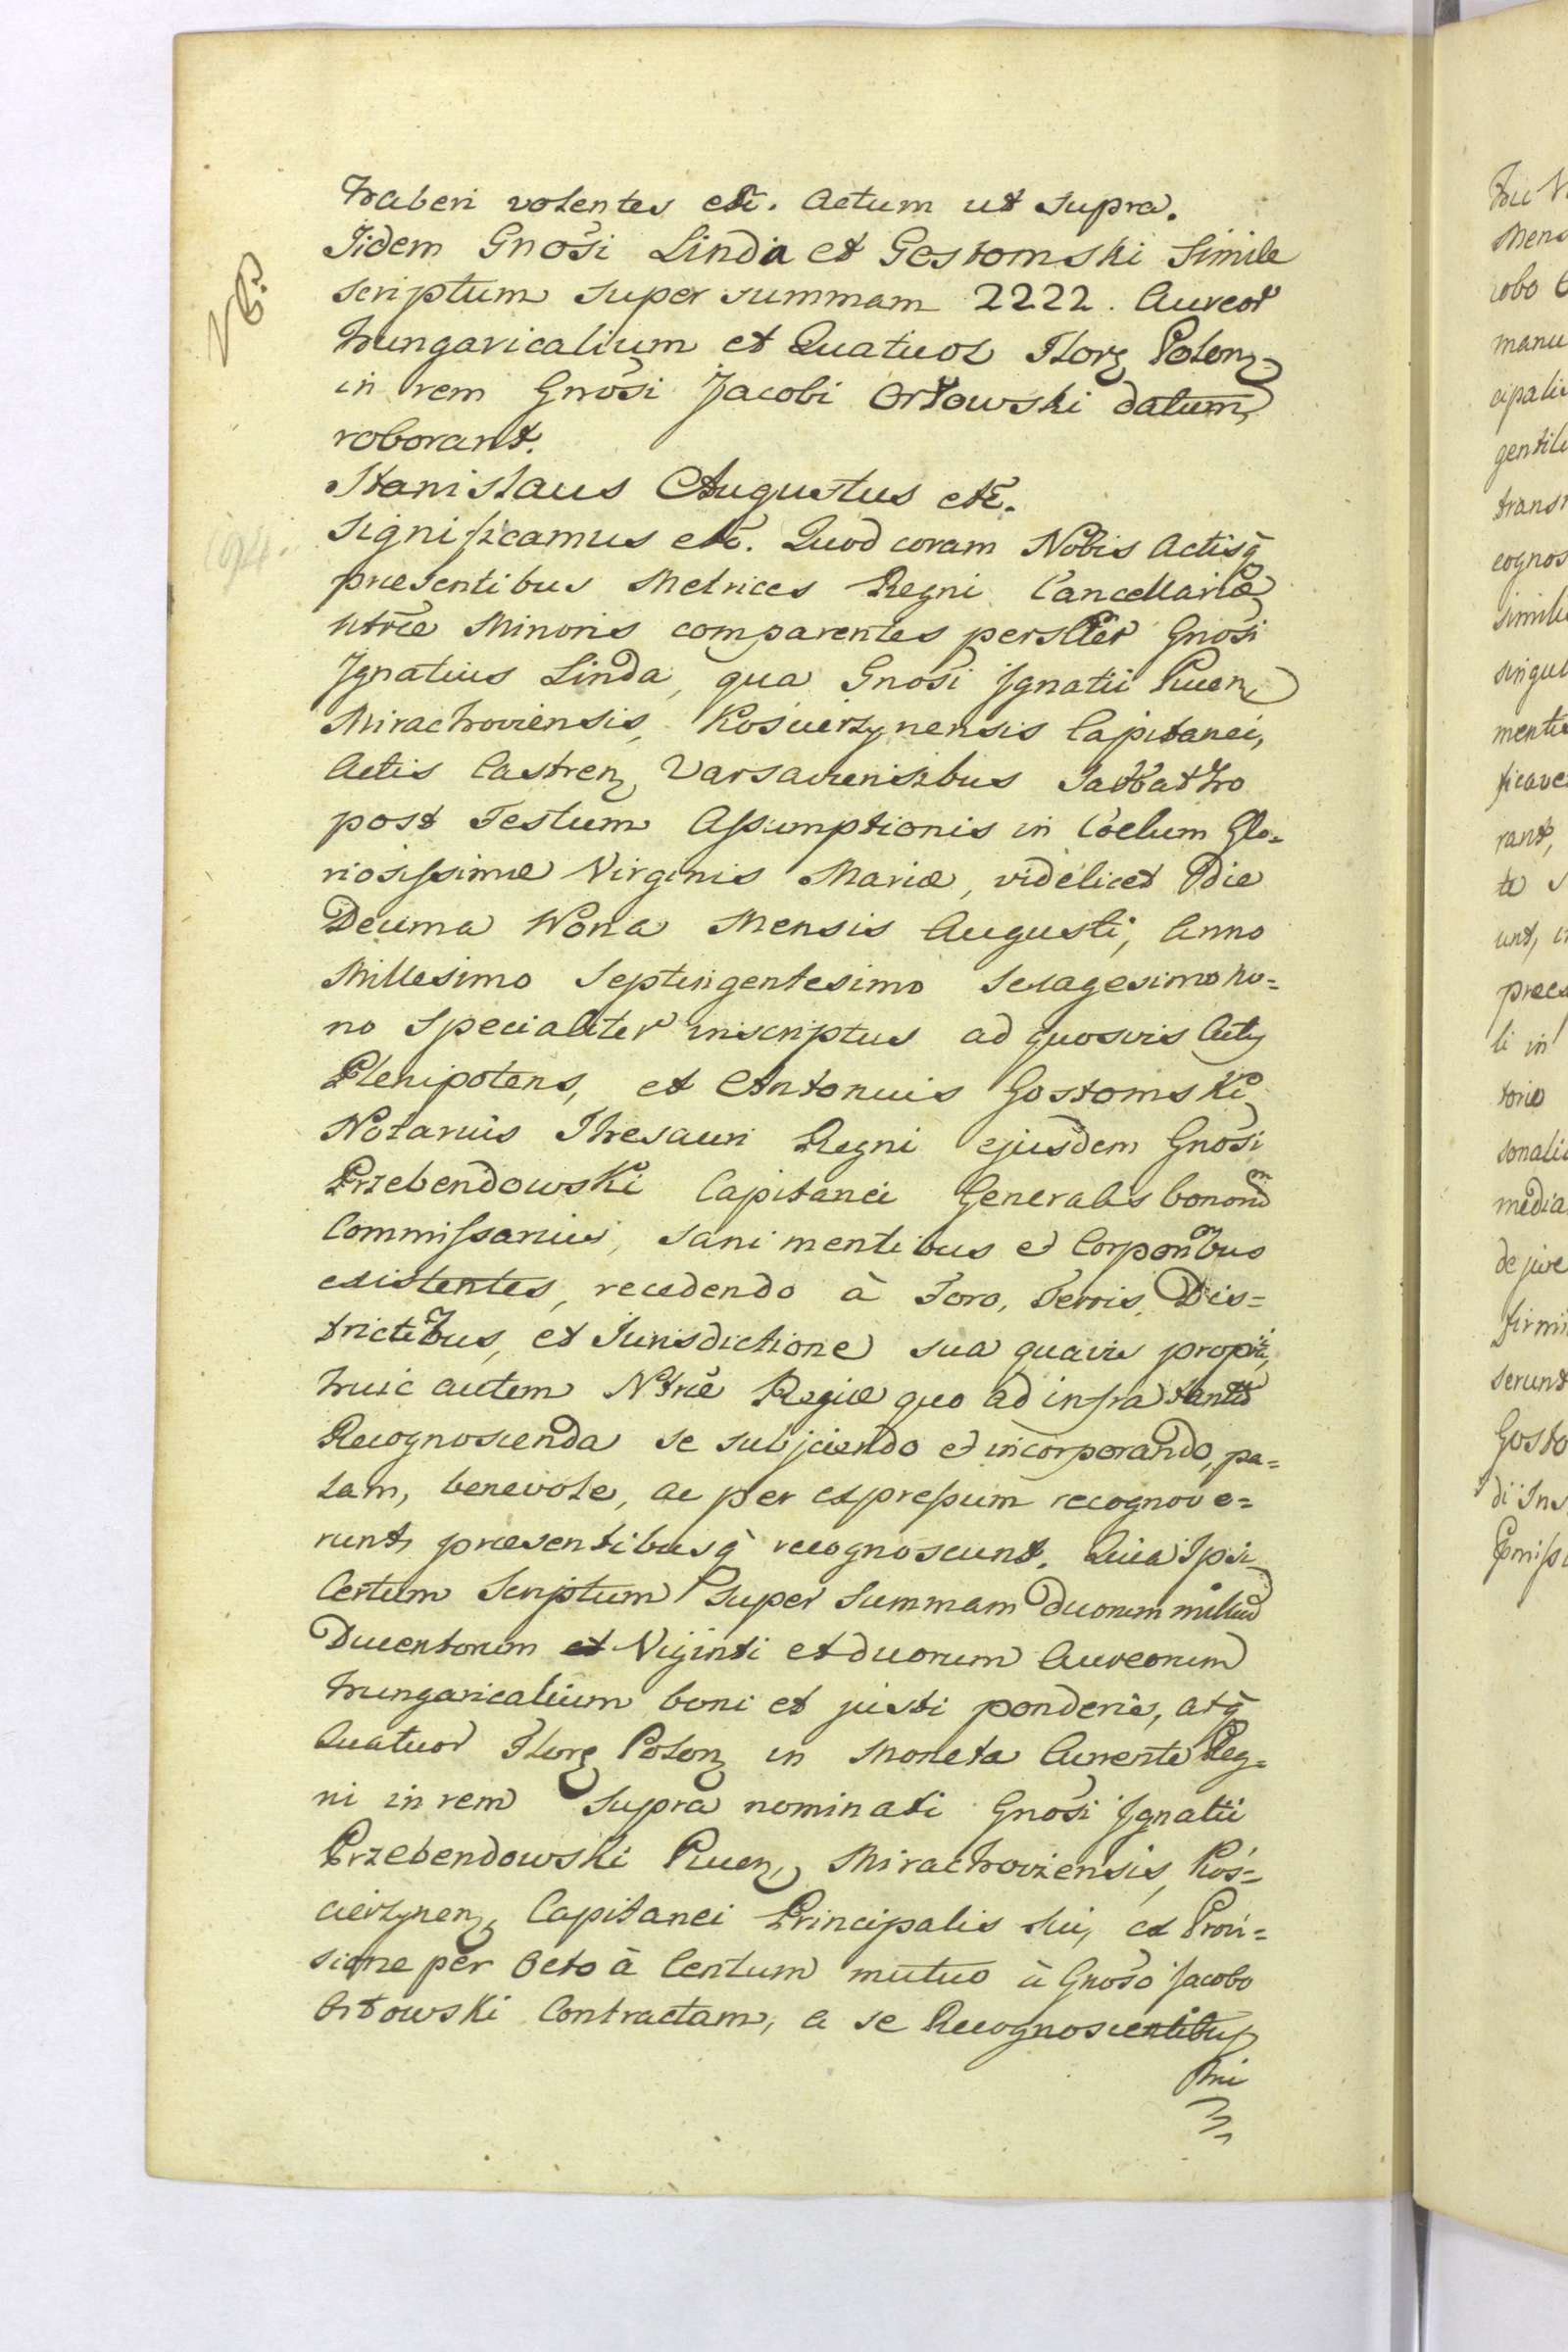 haberi volentes etc̄. Actum ut supra.
NB.
Iidem Gnōsi Linda et Gostomski Simile
scriptum super summam 2222. Aureor
hungaricalium et Quatuor Flor Polon
in rem Gnōsi Jacobi Orłowski datum
roborant.
Stanislaus Augustus etc̄.
Significamus etc̄. Quod coram Nobis Actisq̄
praesentibus Metrices Regni Cancellariæ
Ntræ Minoris comparentes persltēr Gnōsi
Ignatius Linda, qua Gnōsi Ignatii Pucen
Mirachoviensis, Kościerzynensis Capitanei,
Actis Castren Varsaviensibus Sabbatho
post Festum Assumptionis in Coelum Glo=
riosissimæ Virginis Mariæ, videlicet Die
Decima Nona Mensis Augusti, Anno
Millesimo Septingentesimo Sexagesimo no=
no Specialiter inscriptus ad quosvis Actus
Plenipotens, et Antonius Gostomski
Notarius Thesauri Regni ejusdem Gnōsi
Przebendowski Capitanei Generalis bonorū
Commissarius, sani mentibus et Corporibus
existentes, recedendo à Foro, Terris, Dis=
trictibus, et Iurisdictione sua quavis propriâ,
huic autem Ntræ Regiæ quo ad infra
Recognoscenda se subjiciendo et incorporando, pa=
lam, benevole, ac per expressum recognove=
runt, praesentibusq̄ recognoscunt. Quia Ipsi
Certum Scriptum super Summam Duorum milliū
Ducentorum et Viginti et duorum Aureorum
hungaricalium boni et justi ponderis, atq̄
Quatuor Flor Polon in Moneta Currente Reg=
ni in rem supra nominati Gnōsi Ignatii
Przebendowski Pucen, Mirachoviensis, Koś=
cierzynen Capitanei Principalis sui, ex Provi=
sione per Octo à Centum mutuo à Gnōso Jacobo
Orłowski Contractam, a se Recognoscentibus